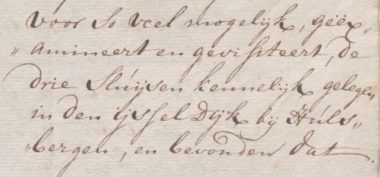 voor so veel mogelijk, geëx„
„amineert en gevisiteert, de
drie Sluijsen kennelijk gelegen
in den ijssel Dijk bij Huls„
„bergen, en bevonden dat